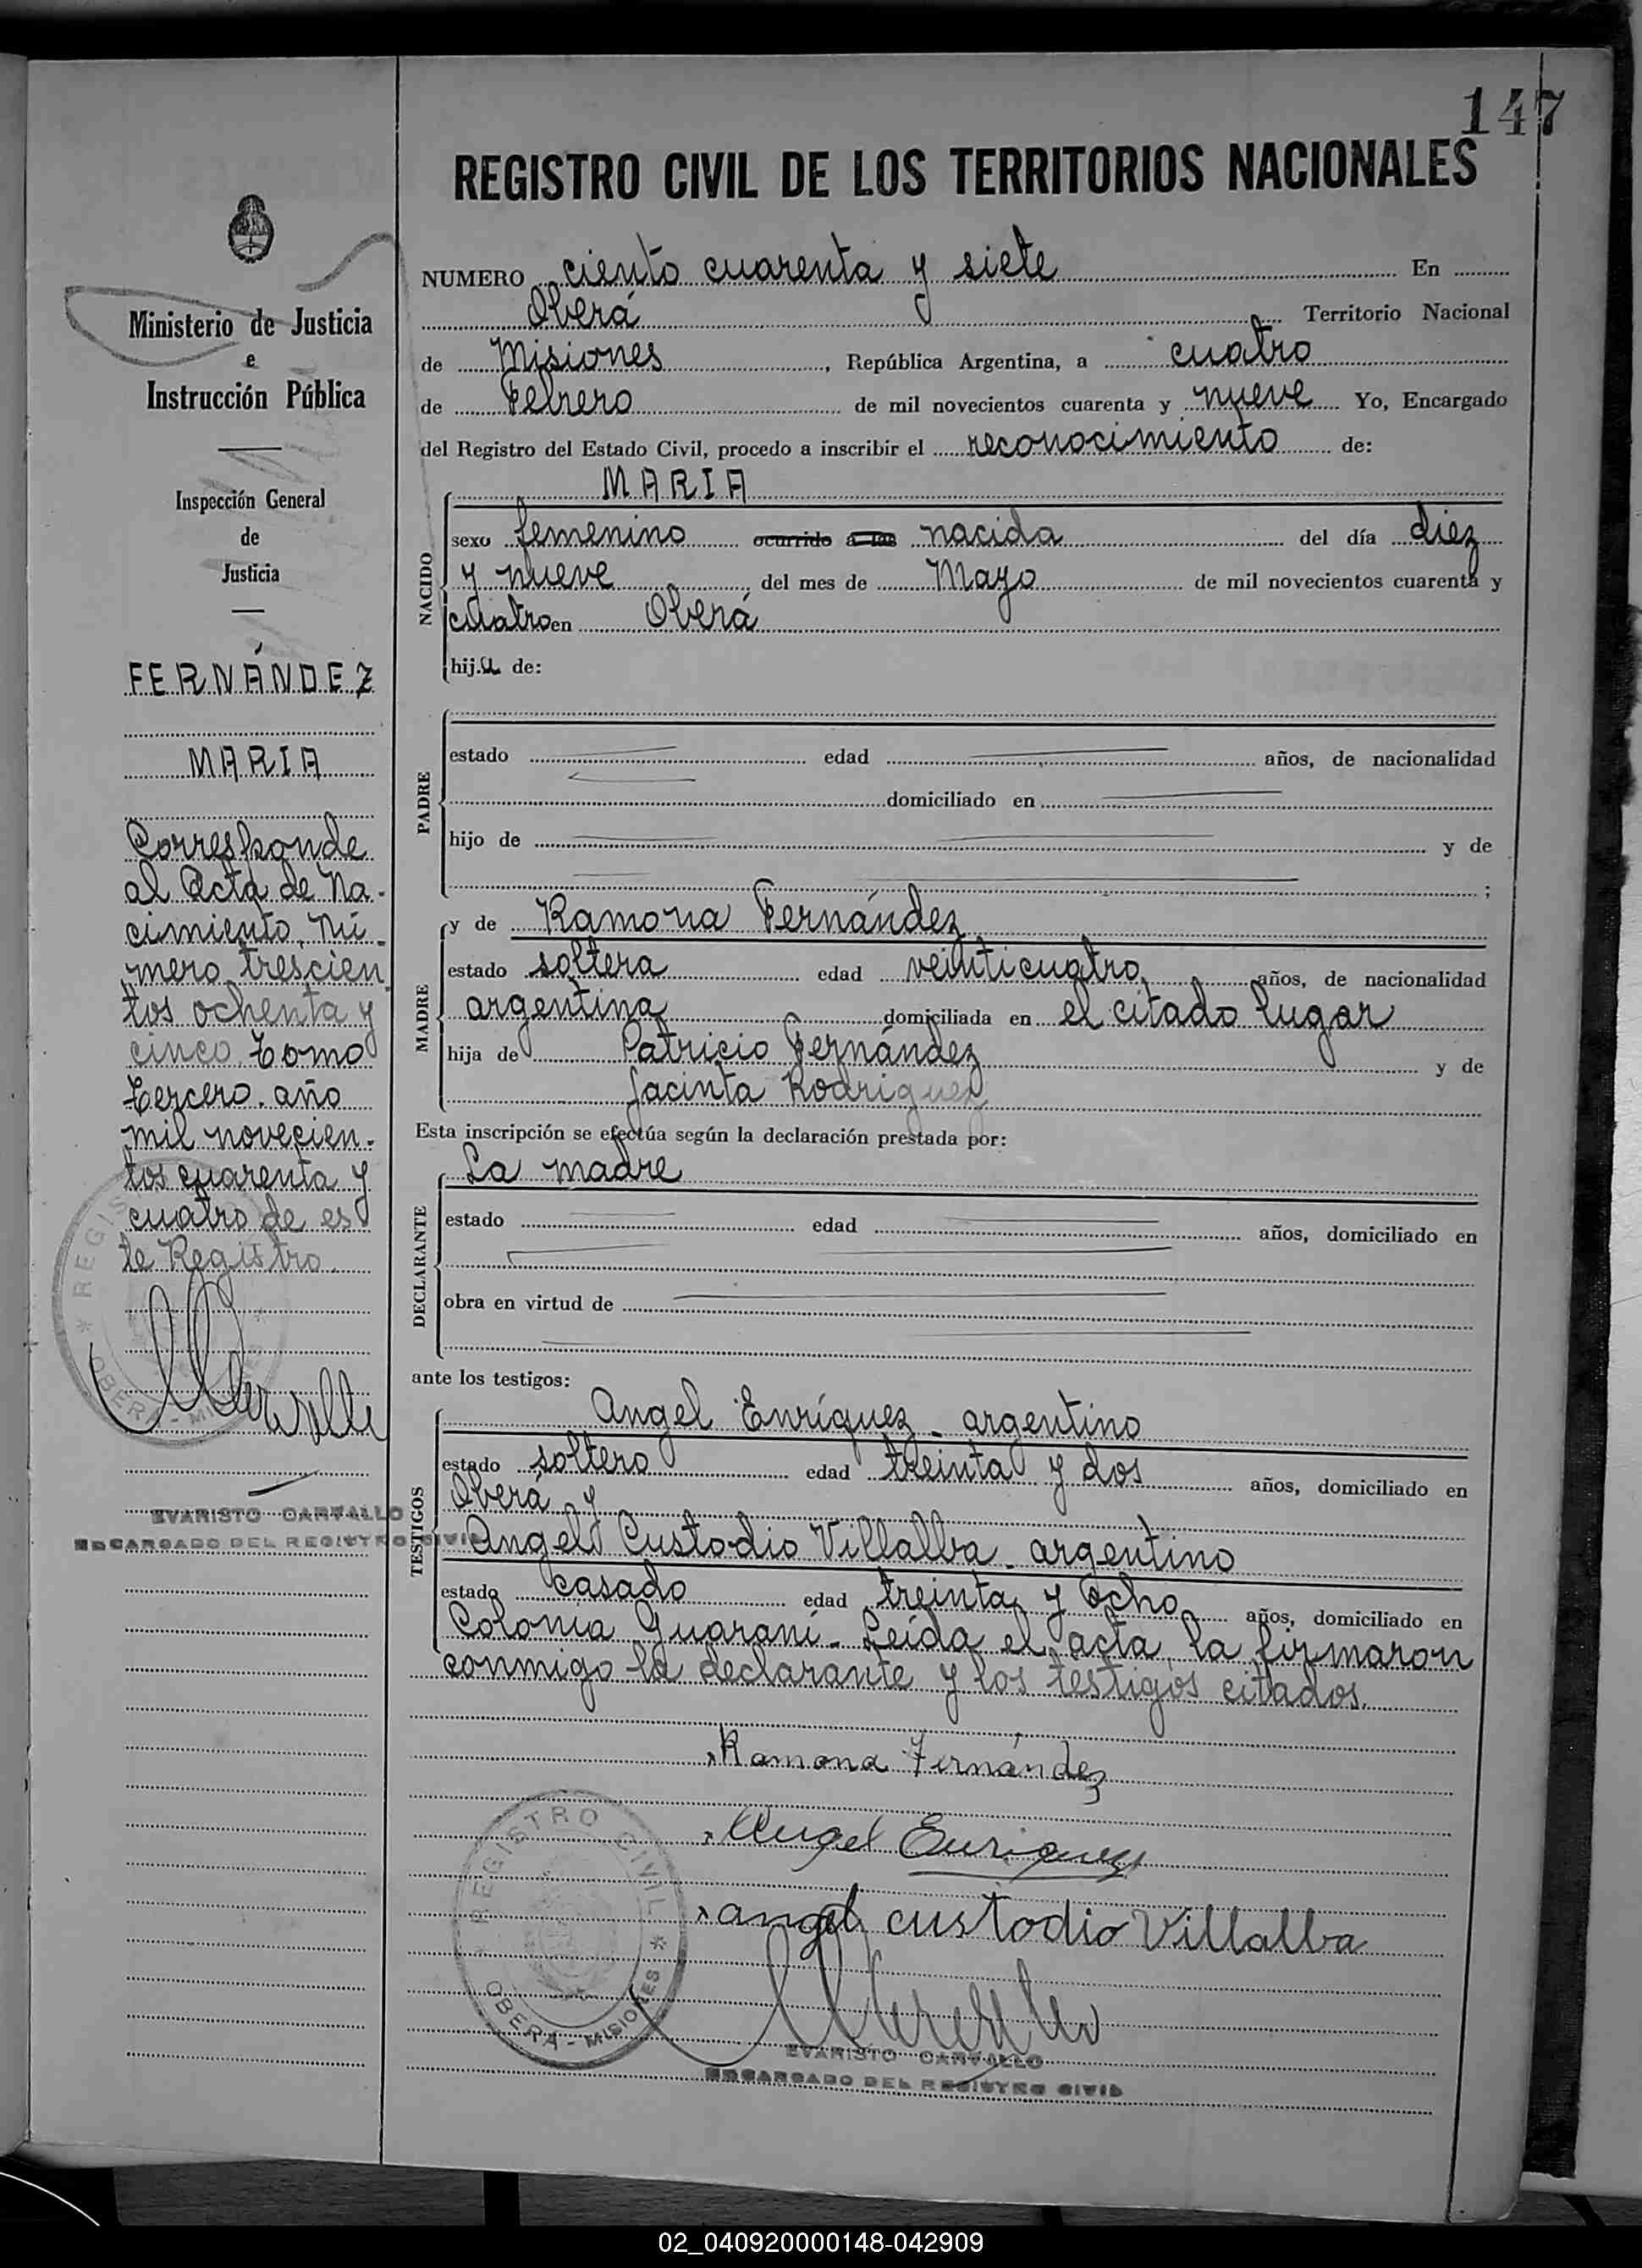 147
REGISTRO CIVIL DE LOS TERRITORIOS NACIONALES
Ministerio de Justicia
e
Instrucción Pública
Inspección General
de
Justicia
FERNÁNDEZ
MARIA
Corresponde
al Acta de Na-
cimiento, Nú-
mero trescien
tos ochenta y
cinco Tomo
tercero. año
mil novecien-
tos cuarenta y
cuatro de es
te Registro.
REGISTRO CIVIL
OBERA - MISIONES
EVARISTO CARVALLO
ENCARGADO DEL REGISTRO CIVIL
NUMERO ciento cuarenta y siete En
Oberá Territorio Nacional
de Misiones, República Argentina, a cuatro
de Febrero de mil novecientos cuarenta y nueve Yo, Encargado
del Registro del Estado Civil, procedo a inscribir el reconocimiento de:
NACIDO
MARIA
sexo femenino ocurrido a las nacida del día diez
y nueve del mes de Mayo de mil novecientos cuarenta y
cuatro en Oberá
hij.a de:
PADRE
estado edad años, de nacionalidad
domiciliado en
hijo de y de
;
MADRE
y de Ramona Fernández
estado soltera edad veinticuatro años, de nacionalidad
argentina domiciliada en el citado lugar
hija de Patricio Fernández y de
Jacinta Rodriguez
Esta inscripción se efectúa según la declaración prestada por:
DECLARANTE
La madre
estado edad años, domiciliado en
obra en virtud de
ante los testigos:
TESTIGOS
Angel Enríquez - argentino
estado soltero edad treinta y dos años, domiciliado en
Oberá y
Angel Custodio Villalba - argentino
estado casado edad treinta y ocho años, domiciliado en
Colonia Guaraní - Leída el acta, la firmaron
conmigo la declarante y los testigos citados.
Ramona Fernández
Angel Enriquez
angel custodio Villalba
REGISTRO CIVIL
OBERA - MISIONES
EVARISTO CARVALLO
ENCARGADO DEL REGISTRO CIVIL
02_040920000148-042909